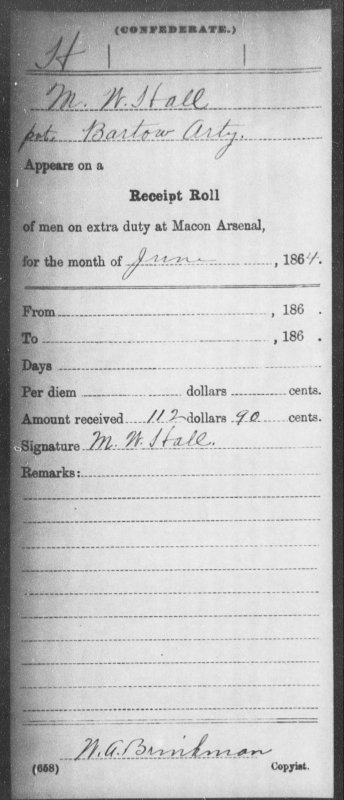 (CONFEDERATE.)
H
M. W. Hall
pvt. Bartow Arty.
Appears on a
Receipt Roll
of men on extra duty at Macon Arsenal,
for the month of June, 1864.
From, 186 .
To, 186 .
Days
Per diem dollars cents.
Amount received 112 dollars 90 cents.
Signature M. W. Hall.
Remarks:
W. A. Brinkman
(658) Copyist.